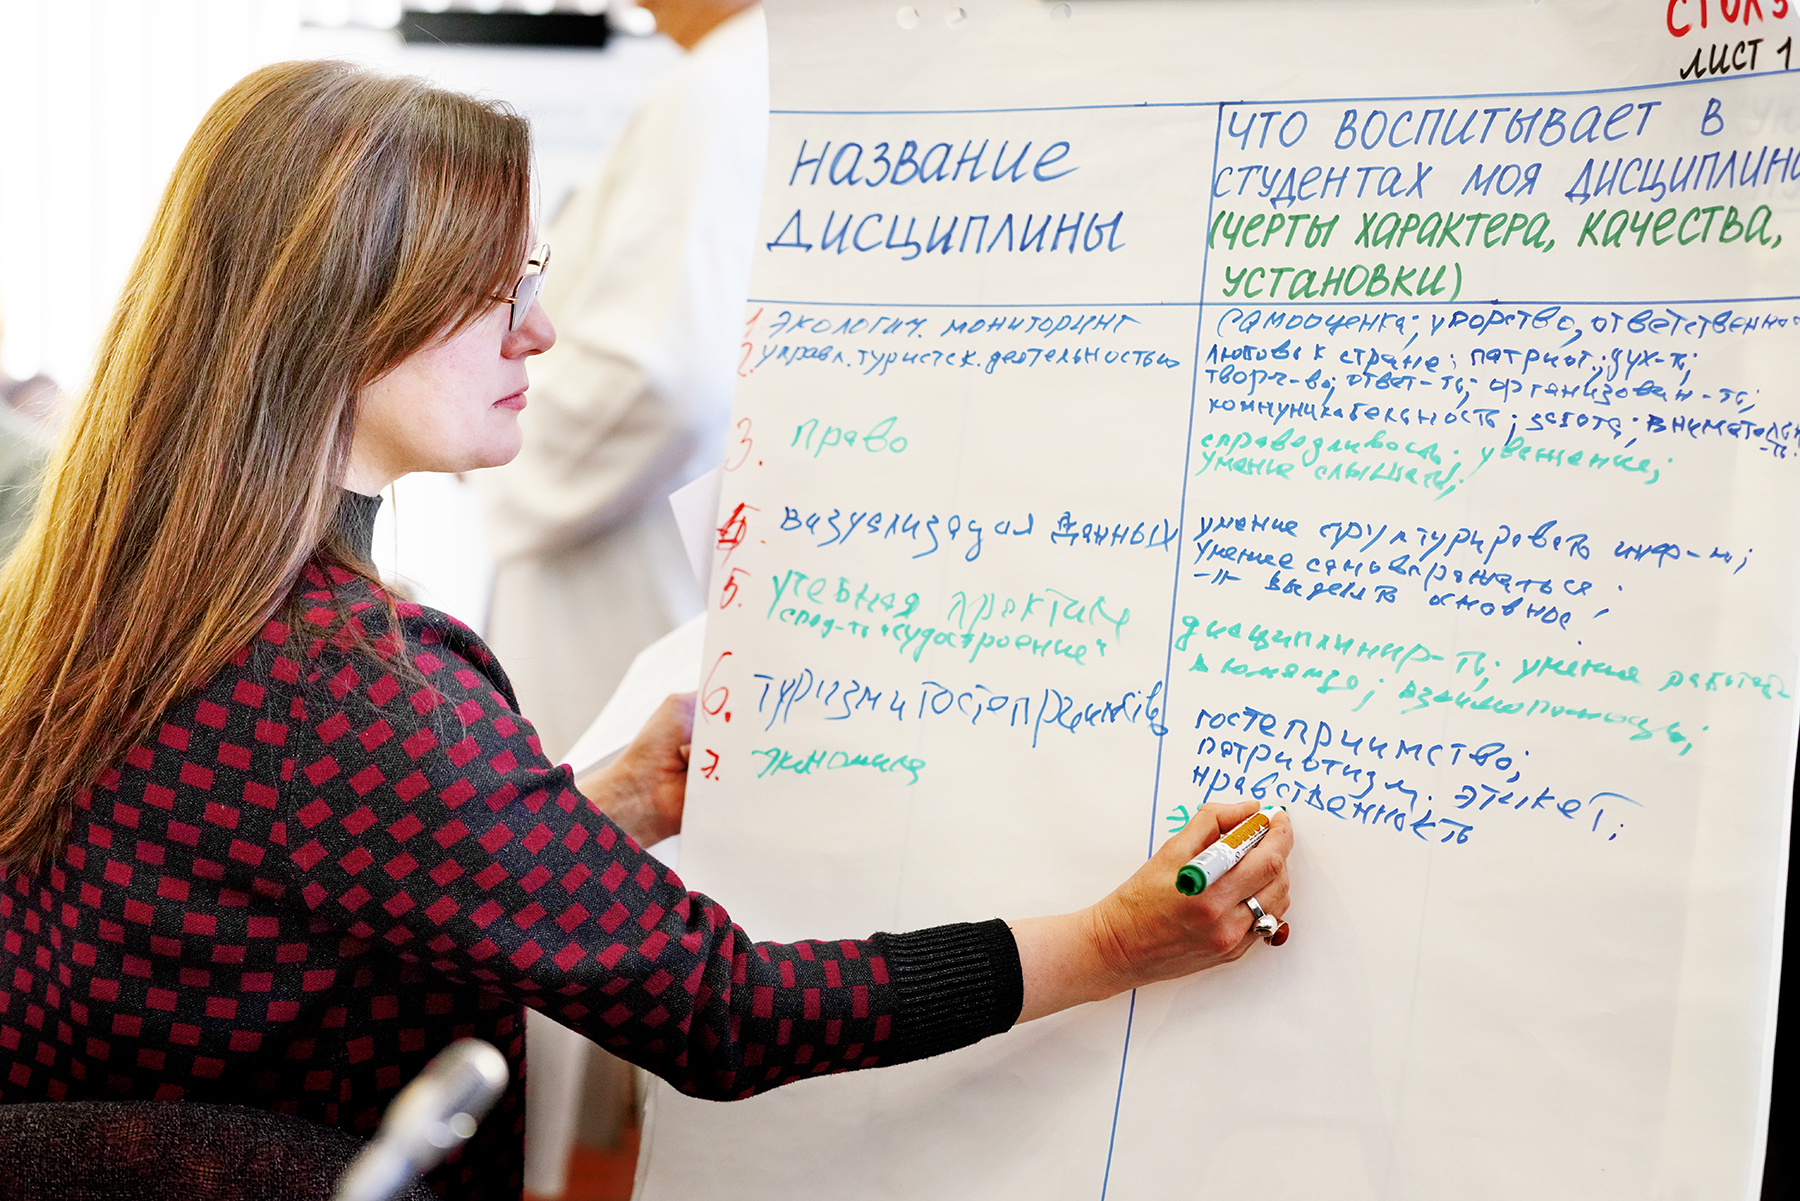 СТОЛ 3
ЛИСТ 1
НАЗВАНИЕ
ДИСЦИПЛИНЫ
ЧТО ВОСПИТЫВАЕТ В
СТУДЕНТАХ МОЯ ДИСЦИПЛИНА
(ЧЕРТЫ ХАРАКТЕРА, КАЧЕСТВА,
УСТАНОВКИ)
1. экологич. мониторинг
2. управл. туристск. деятельностью
самооценка; упорство, ответственно
любовь к стране; патриот.; дух-ть;
творч-во; ответ-ть; организован-ть;
коммуникабельность; забота; внимательн
-ть.
3. право
справедливость; уважение;
умение слышать;
4. визуализация данных
умение структурировать инф-ю;
умение самовыражаться;
-"- выделять основное;
5. учебная практика
спец-ть "судостроение"
дисциплинир-ть; умение работать
в команде; взаимопомощь;
6. туризм и гостеприимство
гостеприимство;
патриотизм; этикет;
нравственность
7. экономика
э